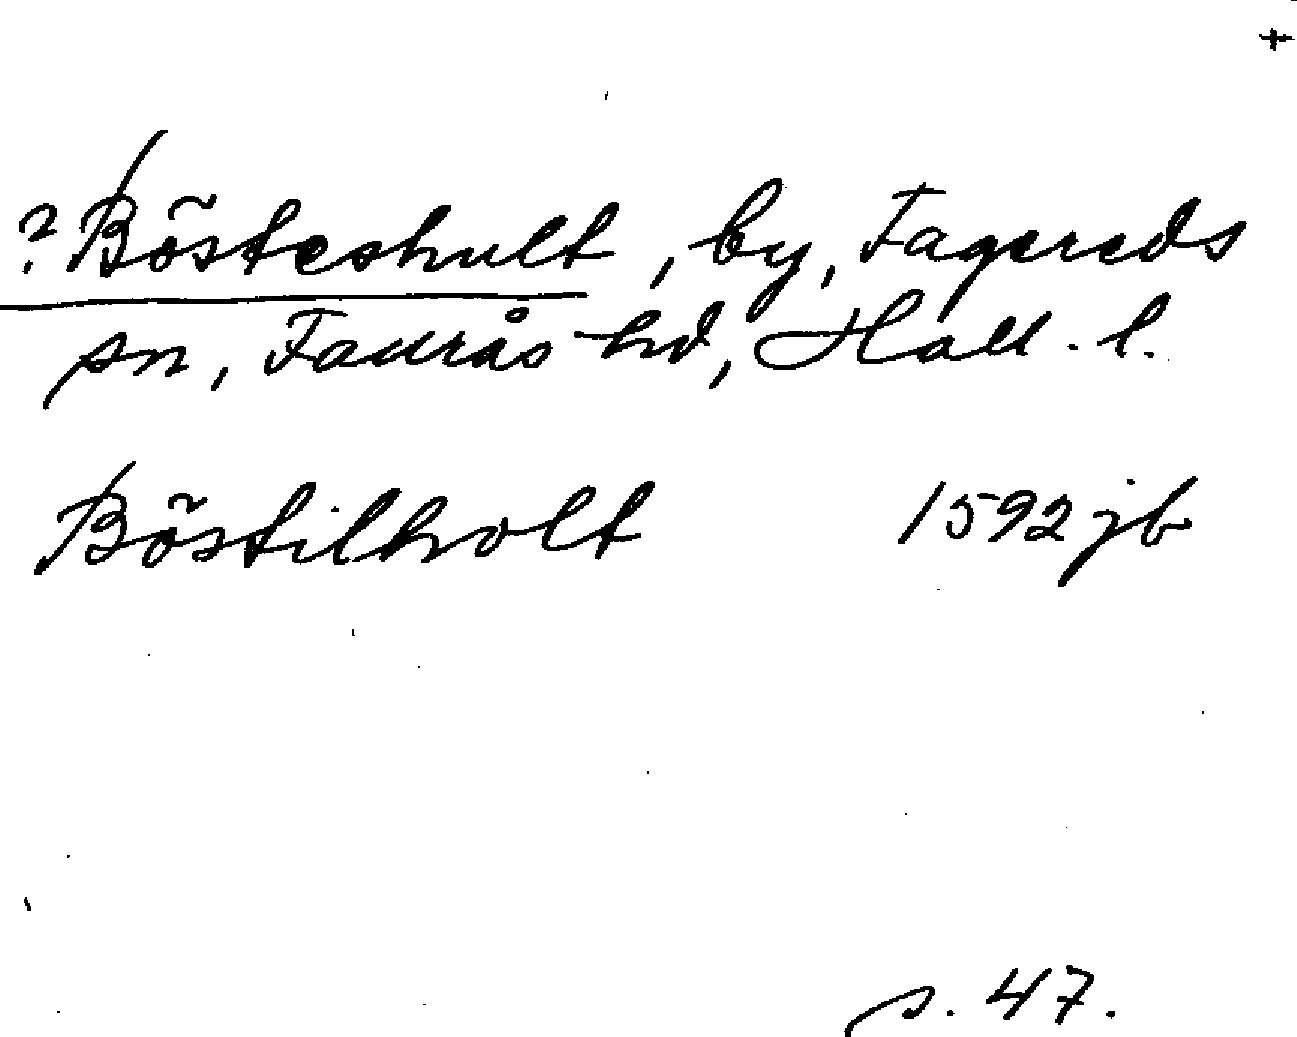 +
? Bösteshult, by, Fagereds
sn, Faurås hd, Hall. l.
Böstilholt 1592 jb
s. 47.